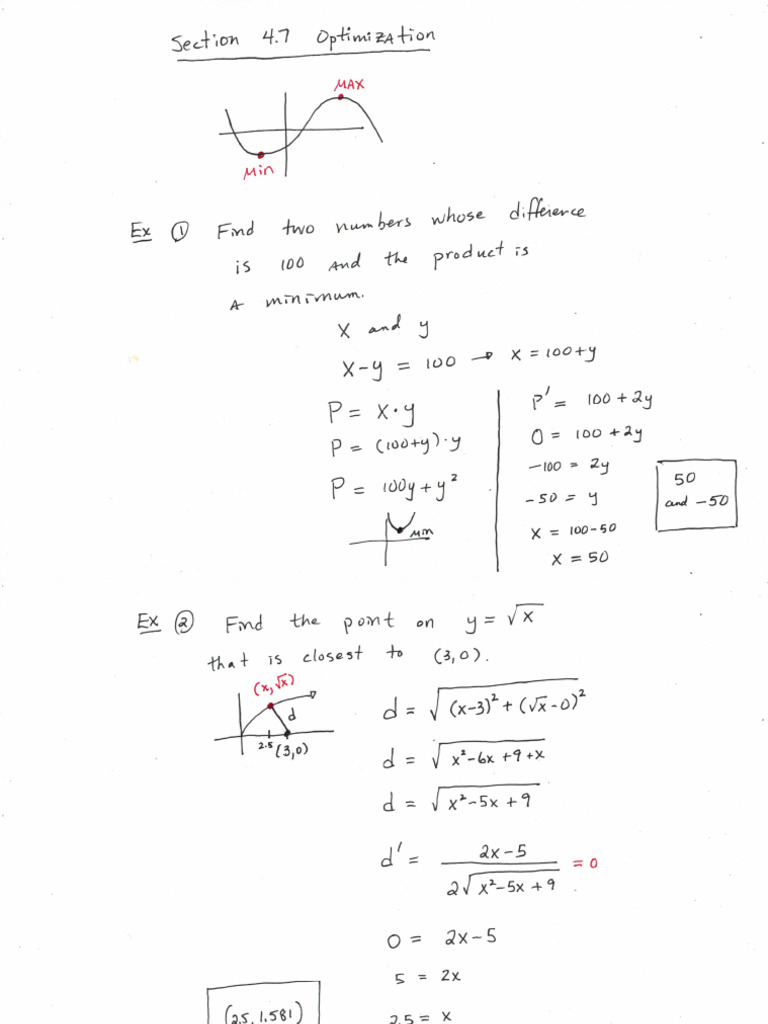 Section 4.7 Optimization
MAX
Min
Ex ① Find two numbers whose difference
is 100 and the product is
a minimum.
x and y
x-y = 100 → x = 100+y
P = x·y
P = (100+y)·y
P = 100y + y²
Min
P' = 100 + 2y
0 = 100 + 2y
-100 = 2y
-50 = y
x = 100-50
x = 50
50
and -50
Ex ② Find the point on y = √x
that is closest to (3,0).
(x,√x)
d
2.5 (3,0)
d = √((x-3)² + (√x-0)²)
d = √(x²-6x+9+x)
d = √(x²-5x+9)
d' = (2x-5)/(2√(x²-5x+9)) = 0
0 = 2x-5
5 = 2x
2.5 = x
(2.5, 1.581)